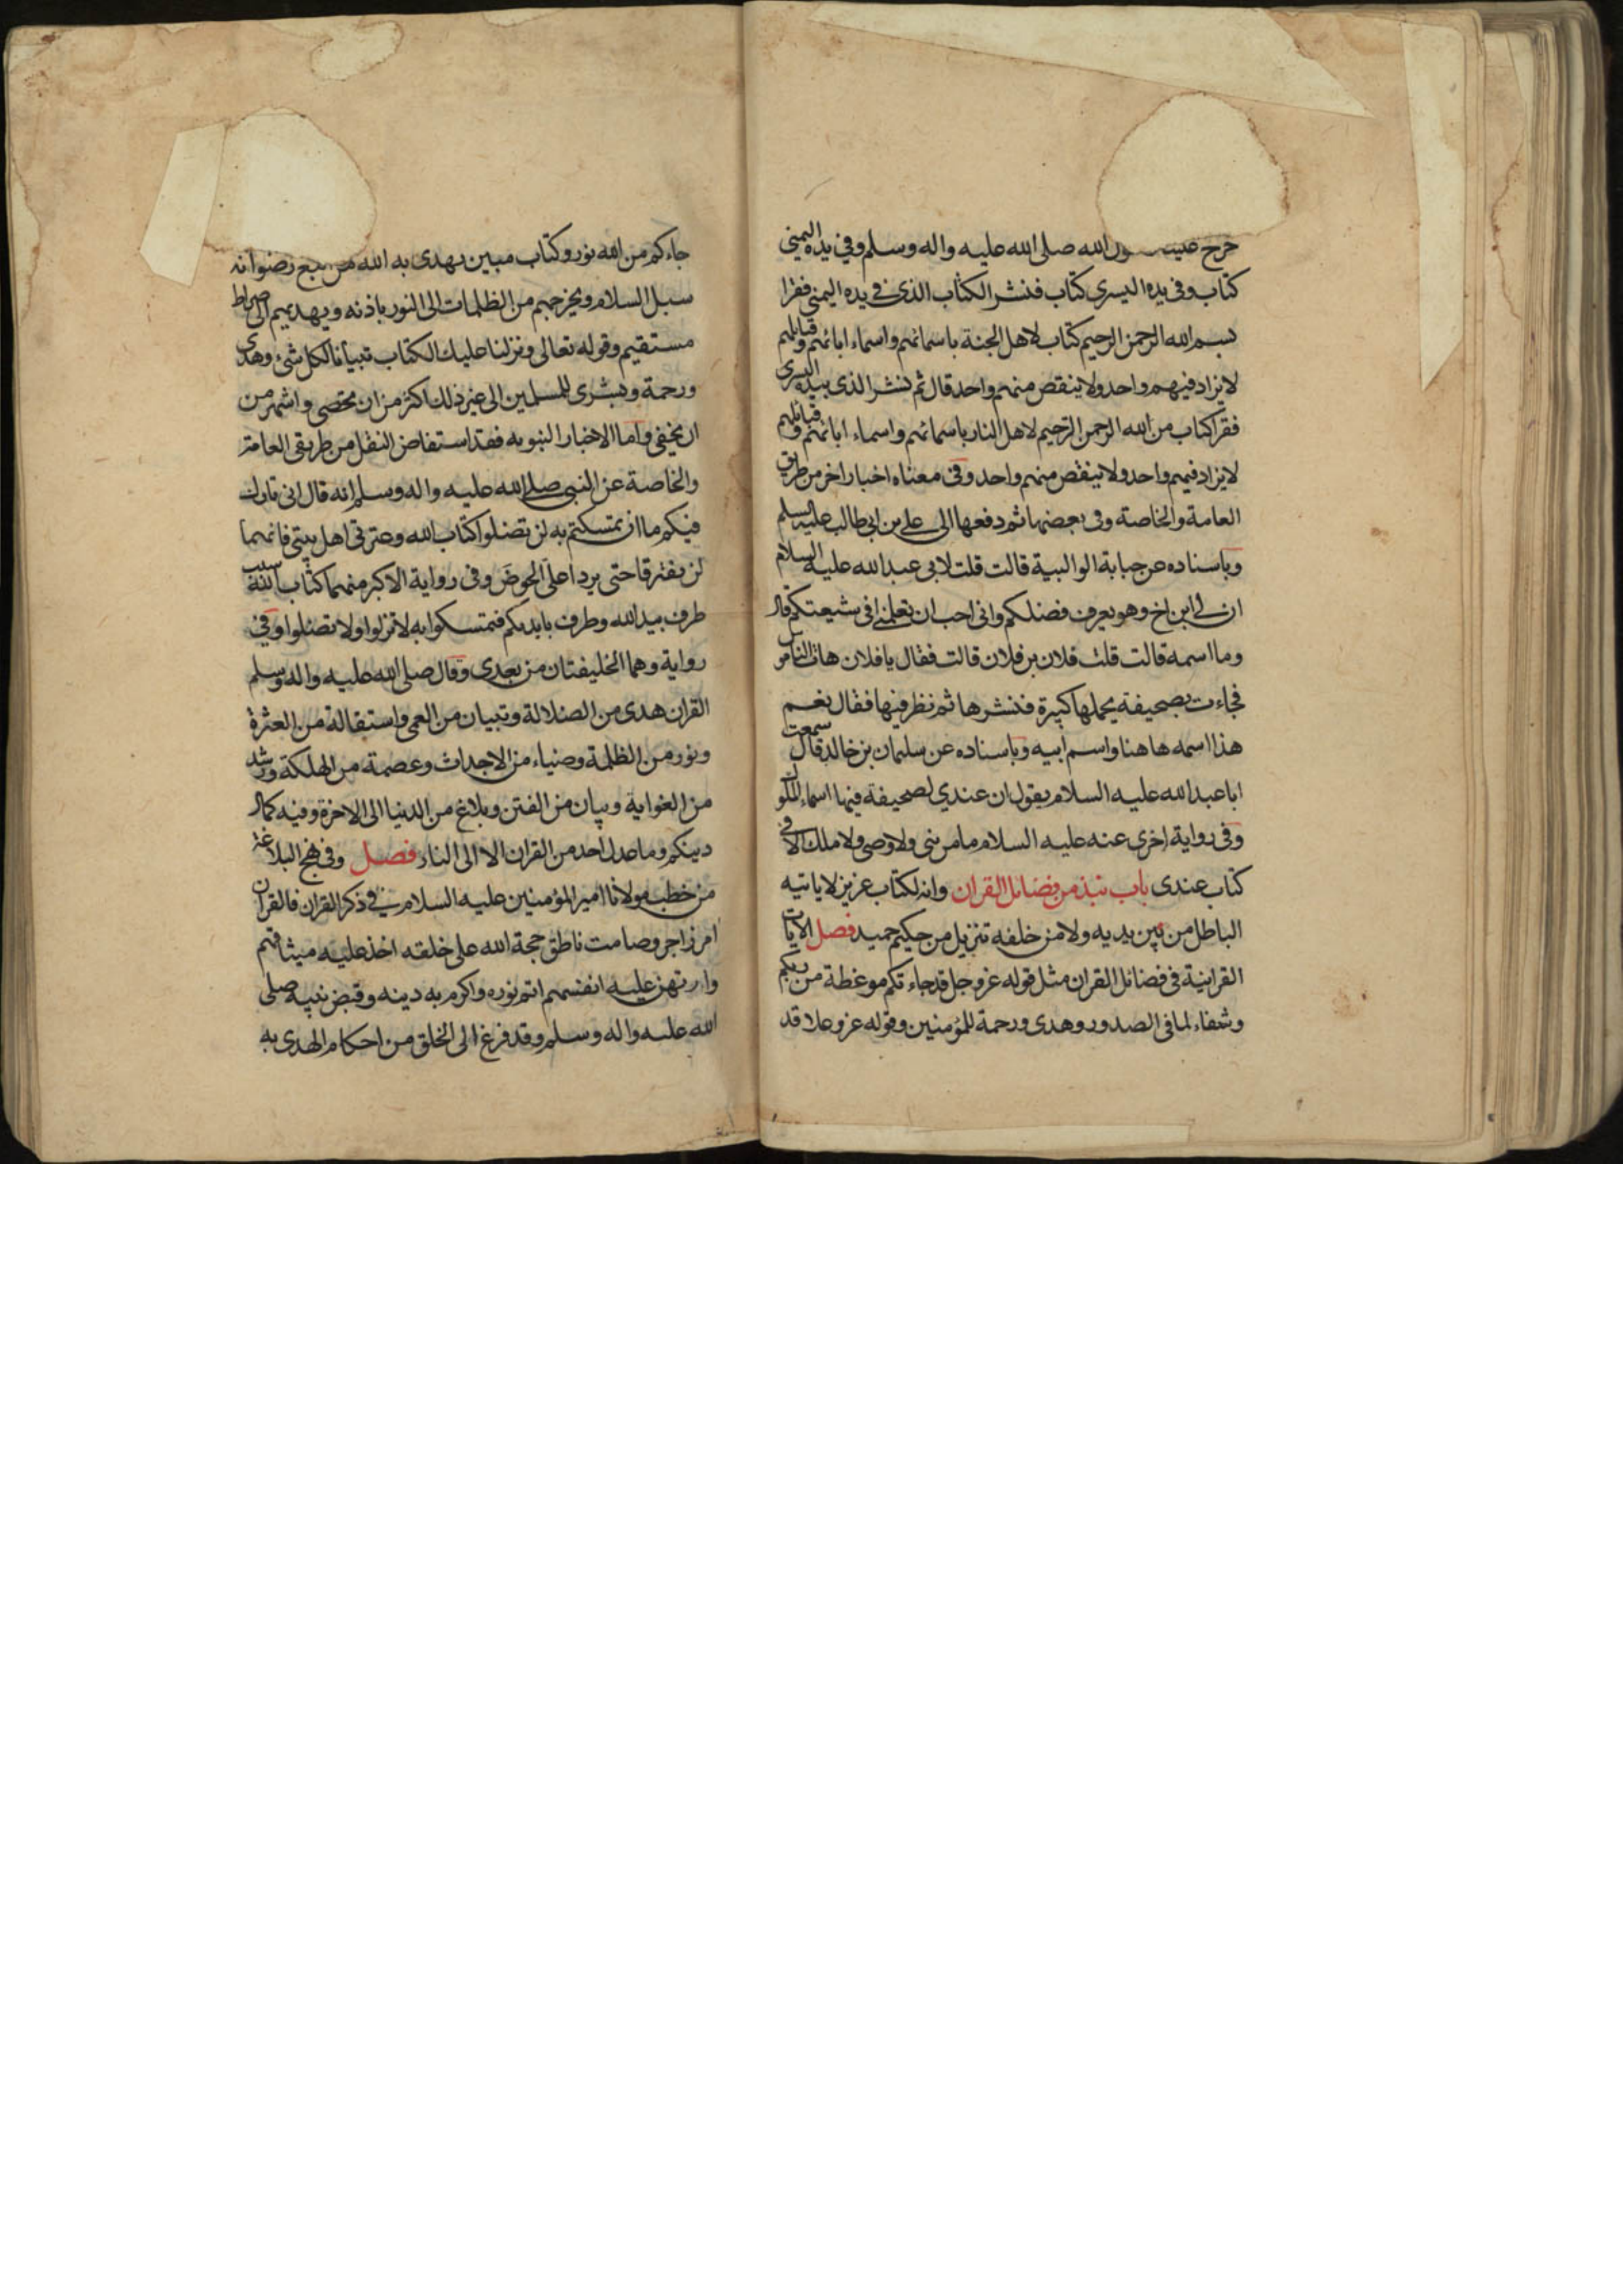 خرج علينا رسول الله صلى الله عليه واله وسلم وفي يده اليمنى
كتاب وفي يده اليسرى كتاب فنشر الكتاب الذي في يده اليمنى فقرا
بسم الله الرحمن الرحيم كتاب لاهل الجنة باسمائهم واسماء ابائهم وقبائلهم
لا يزاد فيهم واحد ولا ينقص منهم واحد قال ثم نشر الذي بيده اليسرى
فقرا كتاب من الله الرحمن الرحيم لاهل النار باسمائهم واسماء ابائهم وقبائلهم
لا يزاد فيهم واحد ولا ينقص منهم واحد وفي معناه اخبار اخر من طريق
العامة والخاصة وفي بعضها ثم دفعها الى علي بن ابي طالب عليه السلم
وباسناده عن حبابة الوالبية قالت قلت لابي عبد الله عليه السلام
ان لي ابن اخ وهو يعرف فضلكم واني احب ان تعلمني افي شيعتكم قال
وما اسمه قالت قلت فلان بن فلان قالت فقال يا فلان هات الناموس
فجاءت بصحيفة يحملها كبيرة فنشرها ثم نظر فيها فقال نعم
هذا اسمه هاهنا واسم ابيه وباسناده عن سليمان بن خالد قال سمعت
ابا عبد الله عليه السلام يقول ان عندي لصحيفة فيها اسماء الملوك
وفي رواية اخرى عنه عليه السلام ما من نبي ولا وصي ولا ملك الا في
كتاب عندي باب نبذ من فضائل القران وانه لكتاب عزيز لا ياتيه
الباطل من بين يديه ولا من خلفه تنزيل من حكيم حميد فصل الايات
القرانية في فضائل القران مثل قوله عز وجل قد جاءتكم موعظة من ربكم
وشفاء لما في الصدور وهدى ورحمة للمؤمنين وقوله عز وعلا قد
جاءكم من الله نور وكتاب مبين يهدى به الله من اتبع رضوانه
سبل السلام ويخرجهم من الظلمات الى النور باذنه ويهديهم الى صراط
مستقيم وقوله تعالى ونزلنا عليك الكتاب تبيانا لكل شئ وهدى
ورحمة وبشرى للمسلمين الى غير ذلك اكثر من ان يحصى واشهر من
ان يخفى واما الاخبار النبويه فقد استفاض النقل من طريقى العامة
والخاصة عن النبي صلى الله عليه واله وسلم انه قال اني تارك
فيكم ما ان تمسكتم به لن تضلوا كتاب الله وعترتي اهل بيتي فانهما
لن يفترقا حتى يردا على الحوض وفي رواية الاكبر منهما كتاب الله سبب
طرف بيد الله وطرف بايديكم فتمسكوا به لا تزلوا ولا تضلوا وفي
رواية وهما الخليفتان من بعدي وقال صلى الله عليه واله وسلم
القران هدى من الضلالة وتبيان من العمى واستقالة من العثرة
ونور من الظلمة وضياء من الاجداث وعصمة من الهلكة ورشد
من الغواية وبيان من الفتن وبلاغ من الدنيا الى الاخرة وفيه كمال
دينكم وما عدل احد من القران الا الى النار فصل وفي نهج البلاغة
من خطب مولانا امير المؤمنين عليه السلام في ذكر القران فالقران
امر زاجر وصامت ناطق حجة الله على خلقه اخذ عليه ميثاقهم
وارتهن عليه انفسهم اتم نوره واكرم به دينه وقبض نبيه صلى
الله عليه واله وسلم وقد فرغ الى الخلق من احكام الهدى به